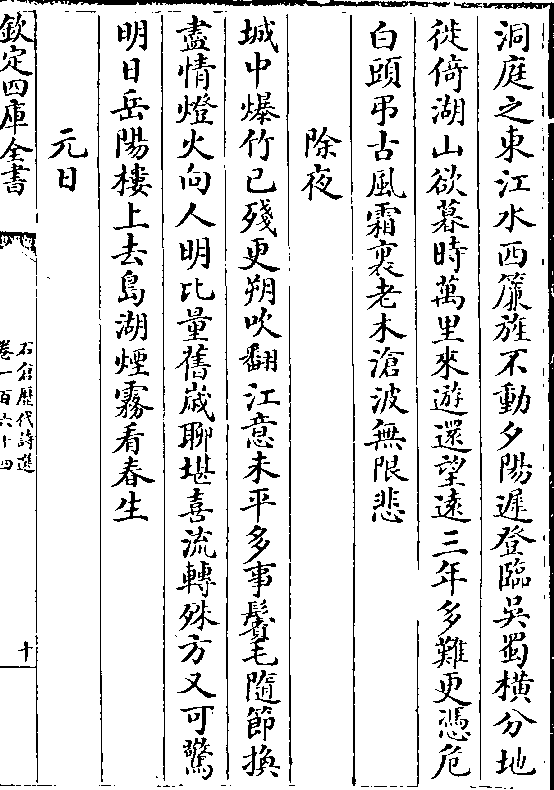 洞庭之東江水西簾旌不動夕陽遲登臨吳蜀橫分地
徙倚湖山欲暮時萬里來遊還望遠三年多難更憑危
白頭弔古風霜裏老木滄波無限悲
除夜
城中爆竹已殘更朔吹翻江意未平多事鬢毛隨節換
盡情燈火向人明比量舊歲聊堪喜流轉殊方又可驚
明日岳陽樓上去島湖煙霧看春生
元日
欽定四庫全書
石倉歷代詩選
卷一百六十四
十